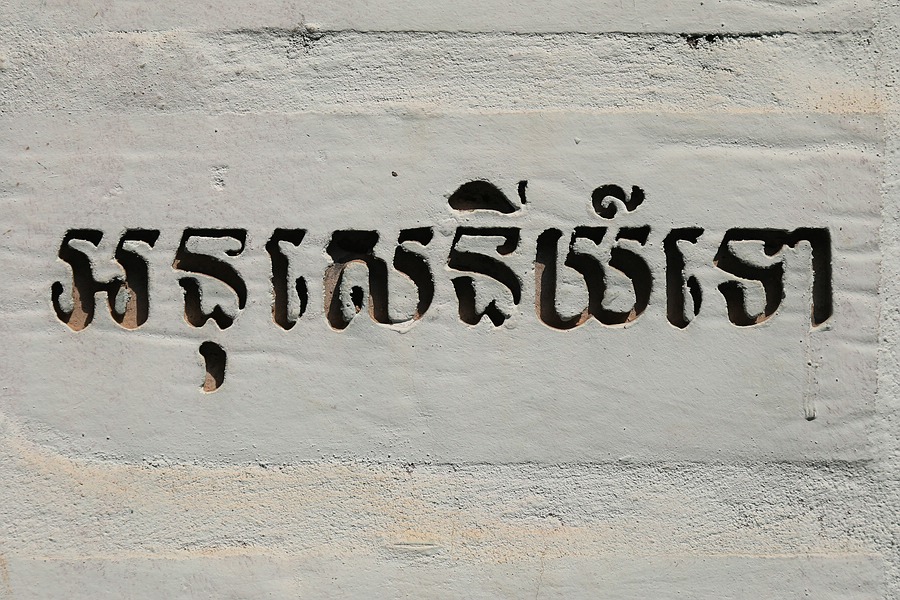 អនុសេនីយ៍ទោ